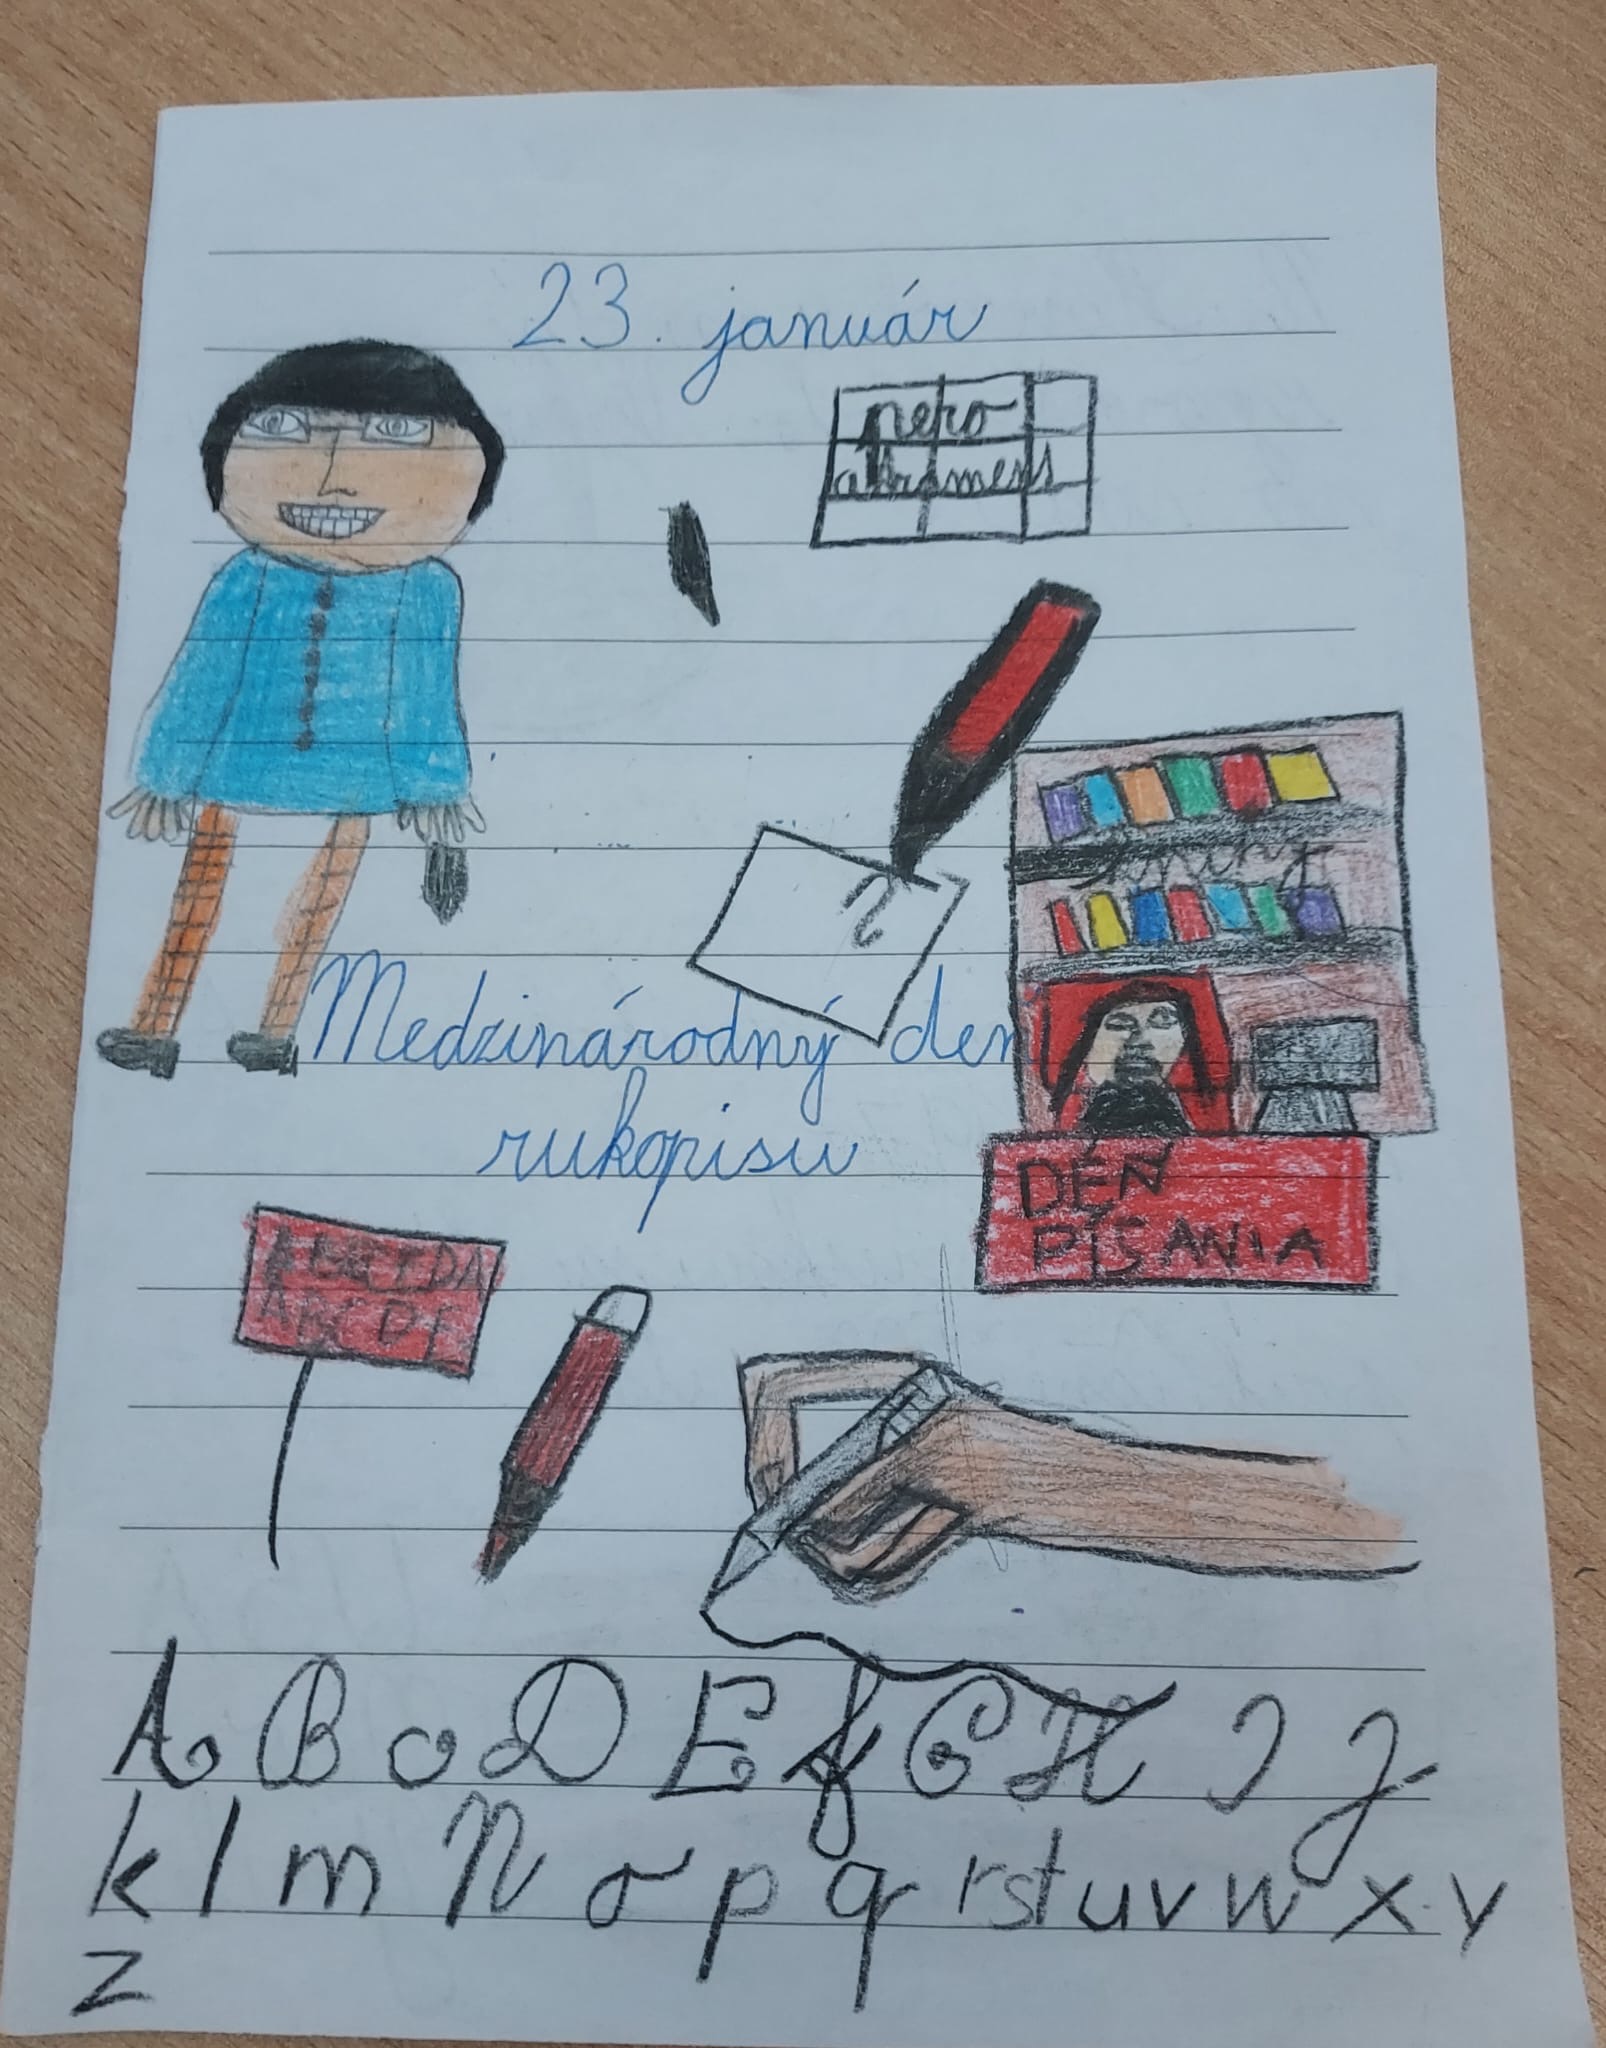 23. január
pero
atrament
knihy
2
Medzinárodný deň
rukopisu
DEŇ
PÍSANIA
ABECEDA
ABCDE
A B c D E f G H I J
k l m N o p q r s t u v w x y
z